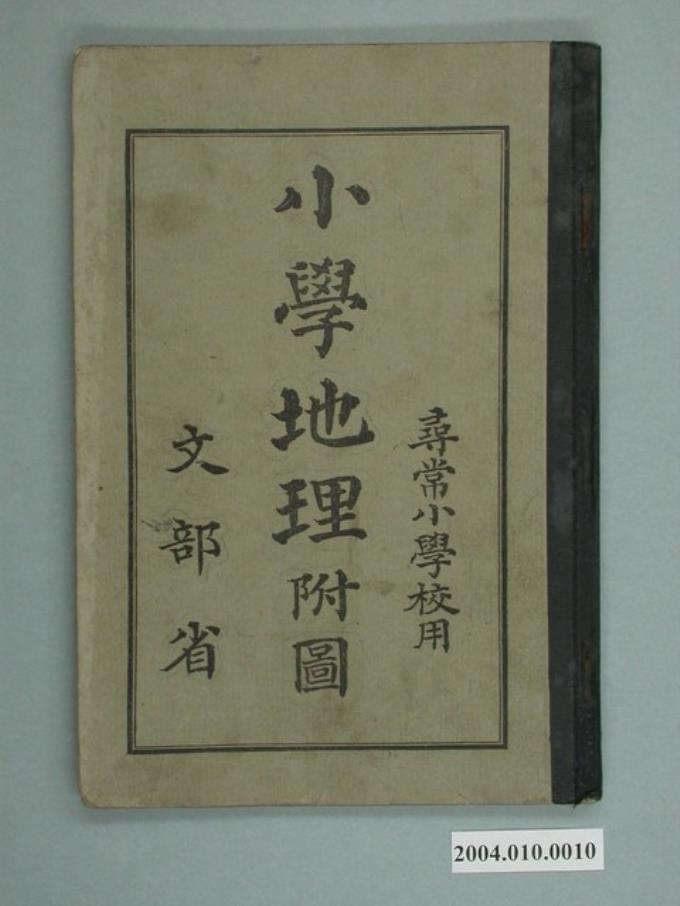 尋常小學校用
小學地理附圖
文部省
2004.010.0010